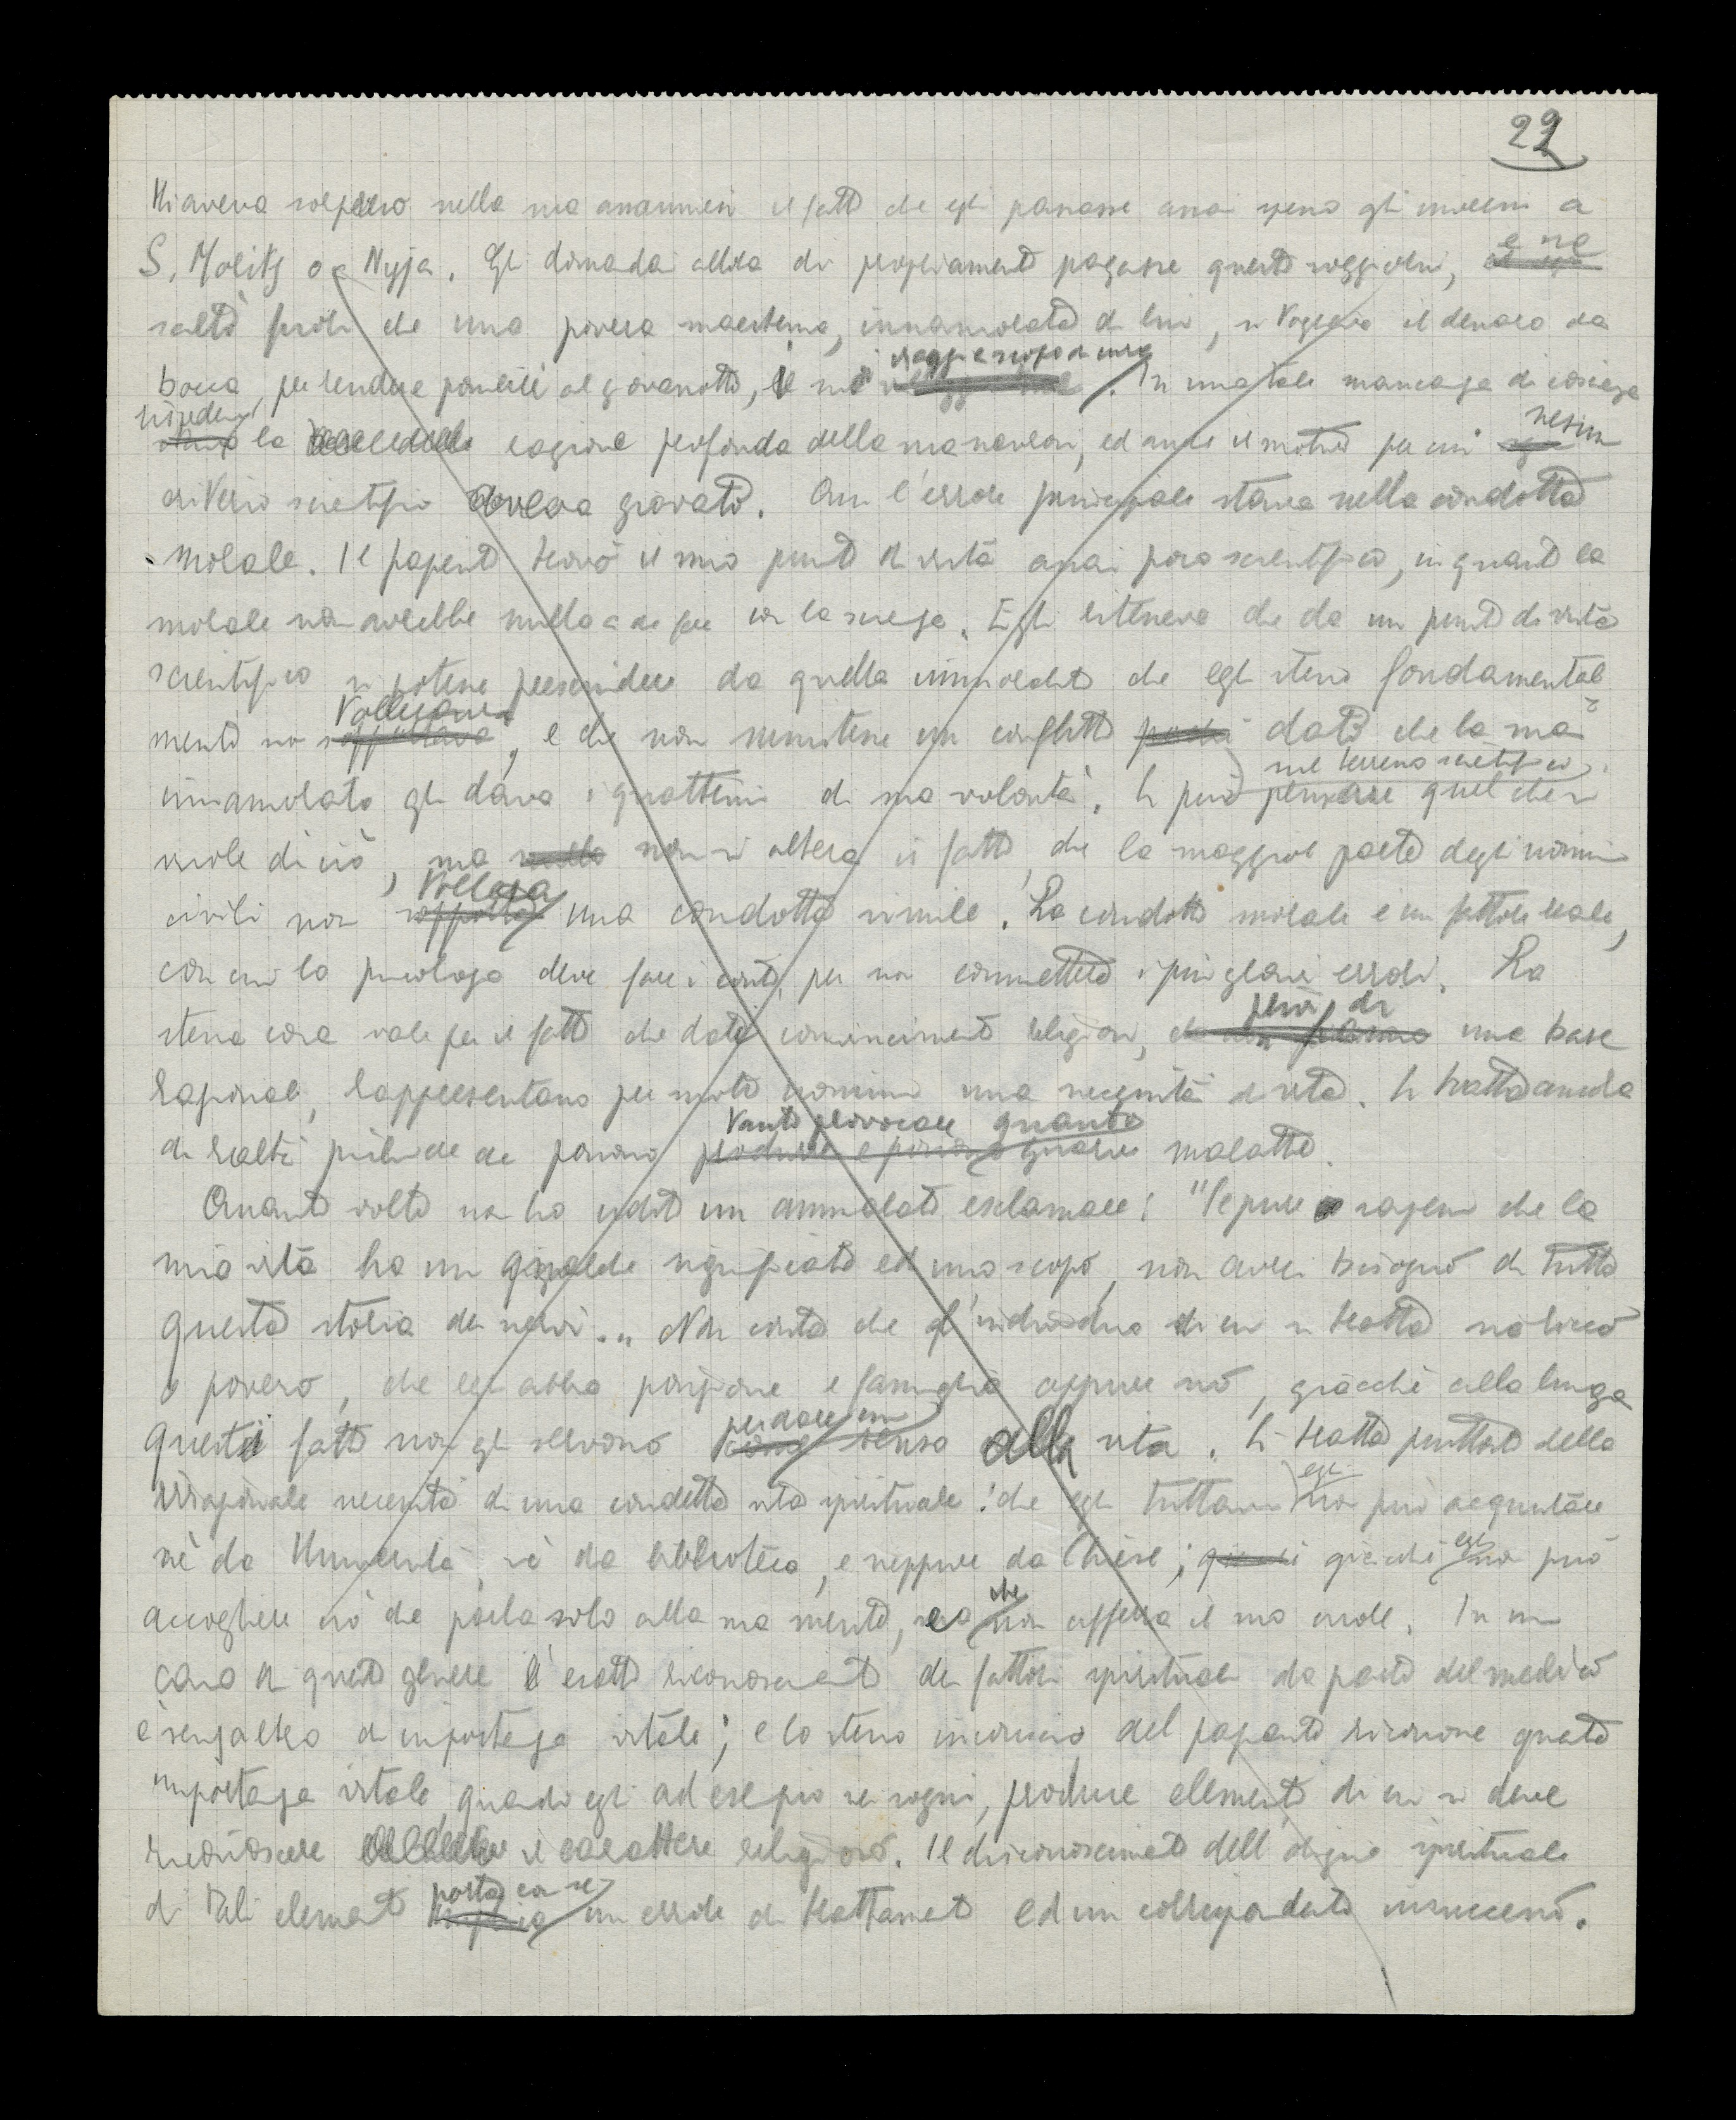 22
Mi aveva sorpreso nella sua anamnesi il fatto che egli passasse assai spesso gli inverni a
S. Moritz o a Nizza. Gli domandai allora chi propriamente pagasse questi soggiorni, e ne
saltò fuori che una povera maestrina, innamorata di lui, si toglieva il denaro da
bocca, per rendere possibili al giovanotto, i suoi viaggi a scopo di cura. In una tale mancanza di coscienza
risiedeva la ragione profonda della sua nevrosi, ed anche il motivo per cui nessun
artificio scientifico aveva giovato. Qui l'errore principale stava nella condotta
morale. Il paziente trovò il mio punto di vista assai poco scientifico, in quanto la
morale non avrebbe nulla a che fare con la scienza. Egli riteneva che da un punto di vista
scientifico si potesse prescindere da quella immoralità che egli stesso fondamental
mente non tollerava, e che non sussistesse un conflitto dato che la sua
innamorata gli dava i quattrini di sua volontà. Si può pensare sul terreno scientifico quel che si
vuole di ciò, ma non si altera il fatto, che la maggior parte degli uomini
civili non tollera una condotta simile. La condotta morale è un fattore reale,
con cui lo psicologo deve fare i conti, per non commettere i più gravi errori. La
stessa cosa vale per il fatto che dati convincimenti religiosi, privi di una base
razionale, rappresentano per molti uomini una necessità di vita. Si tratta ancora
di realtà psichiche che possono tanto provocare quanto guarire malattie.
Quante volte non ho udito un ammalato esclamare: "Se pure sapessi che la
mia vita ha un qualche significato ed uno scopo, non avrei bisogno di tutta
questa storia dei nervi.." Non conta che l'individuo di cui si tratta sia ricco
o povero, che egli abbia posizione e famiglia oppure no, giacchè alla lunga
questi fatti non gli servono per dare un senso alla vita. Si tratta piuttosto della
irrazionale necessità di una cosidetta vita spirituale: che egli tuttavia non può acquistare
nè da Università, nè da biblioteca, e neppure da Chiese; giacchè egli non può
accogliere ciò che parla solo alla sua mente, e che non afferra il suo cuore. In un
caso di questo genere l'esatto riconoscimento dei fattori spirituali da parte del medico
è senzaltro di importanza vitale; e lo stesso inconscio del paziente riconosce questa
importanza vitale, quando egli ad esempio nei sogni, produce elementi di cui si deve
riconoscere il carattere religioso. Il disconoscimento dell'origine spirituale
di tali elementi porta con sè un errore di trattamento ed un corrispondente insuccesso.